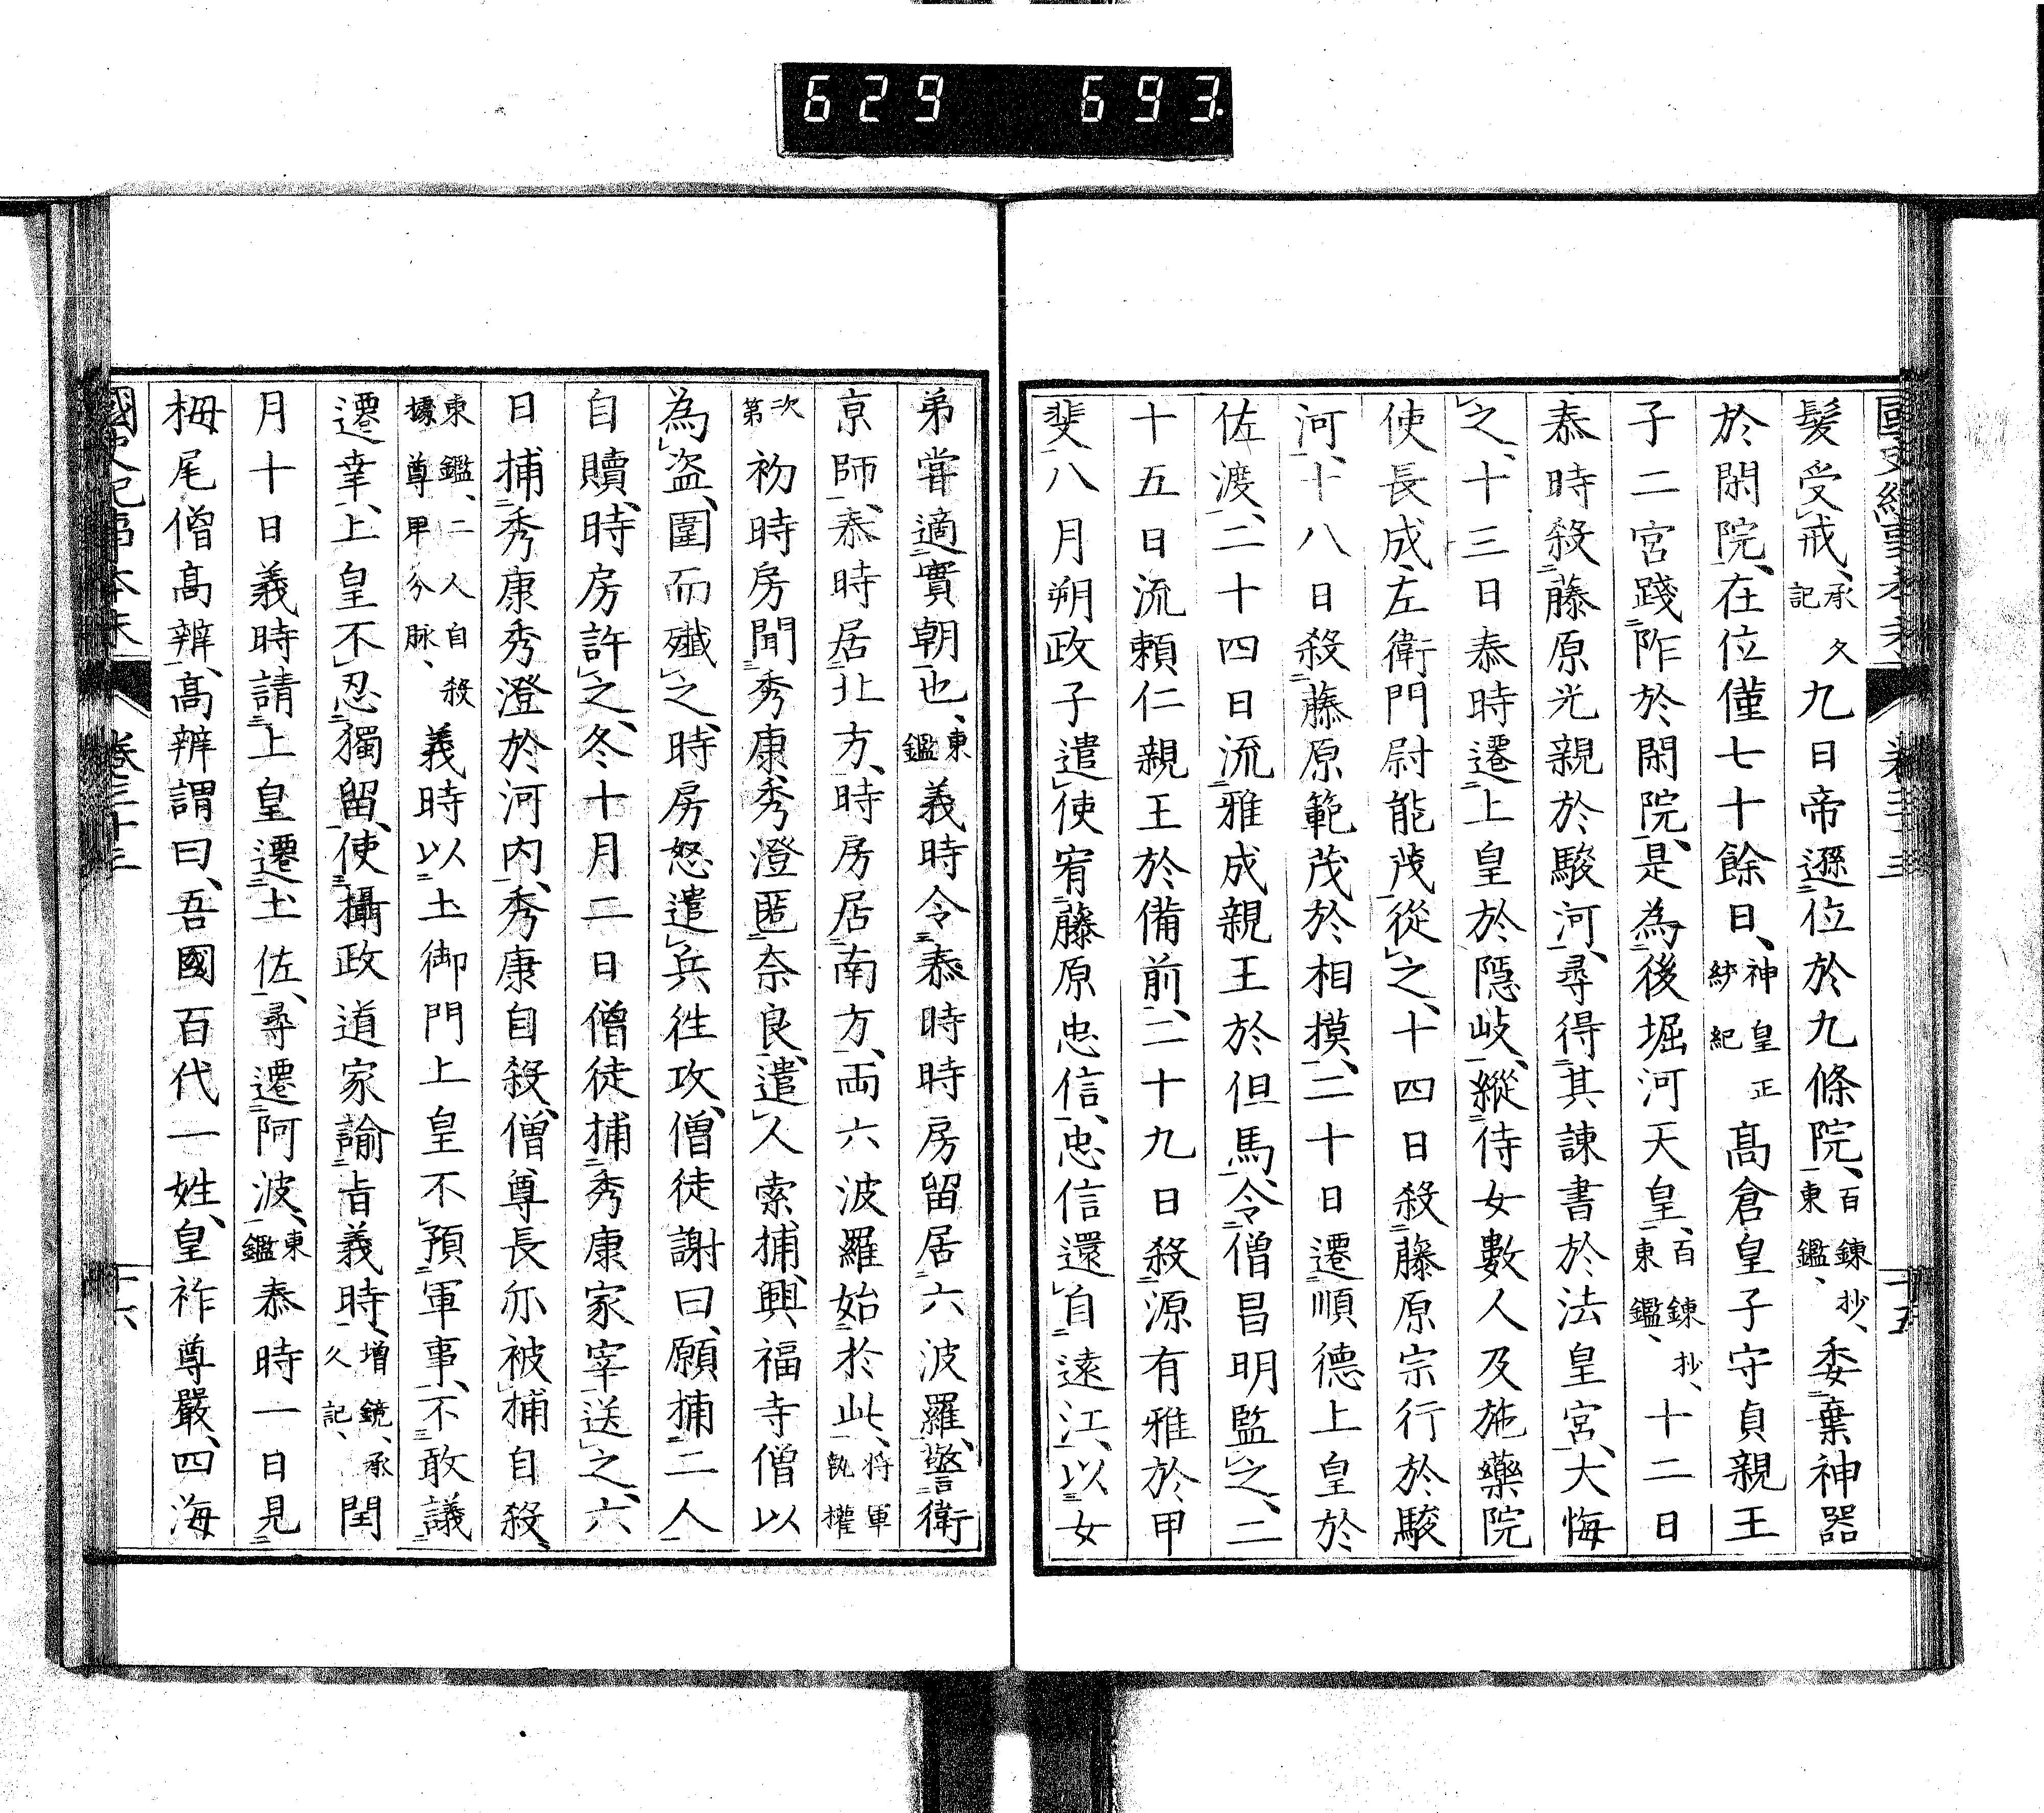 629 693.
髮受戒、承久記九日帝遜位於九條院、百鍊抄、東鑑、委棄神器
於閑院、在位僅七十餘日、神皇正紗紀高倉皇子守貞親王
子二宮踐阼於閑院、是為後堀河天皇、百鍊抄、東鑑、十二日
泰時殺藤原光親於駿河、尋得其諫書於法皇宮、大悔
之、十三日泰時遷上皇於隱岐、縱侍女數人及施藥院
使長成、左衛門尉能茂從之、十四日殺藤原宗行於駿
河、十八日殺藤原範茂於相摸、二十日遷順德上皇於
佐渡、二十四日流雅成親王於但馬、令僧昌明監之、二
十五日流賴仁親王於備前、二十九日殺源有雅於甲
斐八月朔政子遣使宥藤原忠信、忠信還自遠江、以女
弟嘗適實朝也、東鑑義時令泰時時房留居六波羅、警衛
京師、泰時居北方、時房居南方、両六波羅始於此、將軍執權
次第初時房聞秀康秀澄匿奈良、遣人索捕、興福寺僧以
為盜、圍而殲之、時房怒遣兵徃攻、僧徒謝曰、願捕二人
自贖、時房許之、冬十月二日僧徒捕秀康家宰送之、六
日捕秀康秀澄於河内、秀康自殺、僧尊長亦被捕自殺、
東鑑、二人自殺據尊卑分脉、義時以土御門上皇不預軍事、不敢議
遷幸、上皇不忍獨留、使攝政道家諭旨義時、增鏡、承久記、閏
月十日義時請上皇遷土佐、尋遷阿波、東鑑泰時一日見
栂尾僧高辨、高辨謂曰、吾國百代一姓、皇祚尊嚴、四海
國史紀事本末 卷三十三 十六